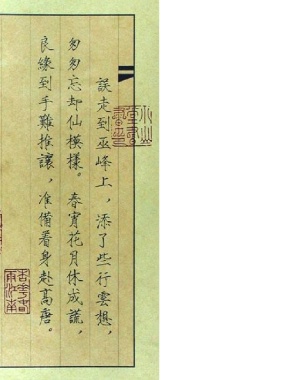 誤走到巫峰上，添了些行雲想，
匆匆忘却仙模樣。春宵花月休成謊，
良緣到手難推讓，准備着身赴高唐。